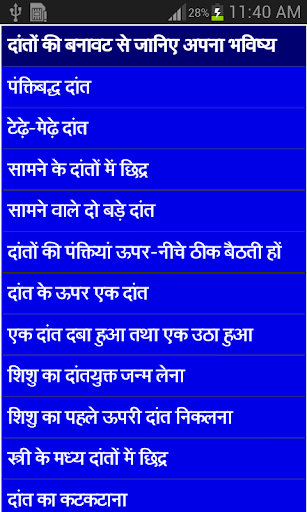 28% 11:40 AM
दांतों की बनावट से जानिए अपना भविष्य
पंक्तिबद्ध दांत
टेढ़े-मेढ़े दांत
सामने के दांतों में छिद्र
सामने वाले दो बड़े दांत
दांतों की पंक्तियां ऊपर-नीचे ठीक बैठती हों
दांत के ऊपर एक दांत
एक दांत दबा हुआ तथा एक उठा हुआ
शिशु का दांतयुक्त जन्म लेना
शिशु का पहले ऊपरी दांत निकलना
स्त्री के मध्य दांतों में छिद्र
दांत का कटकटाना